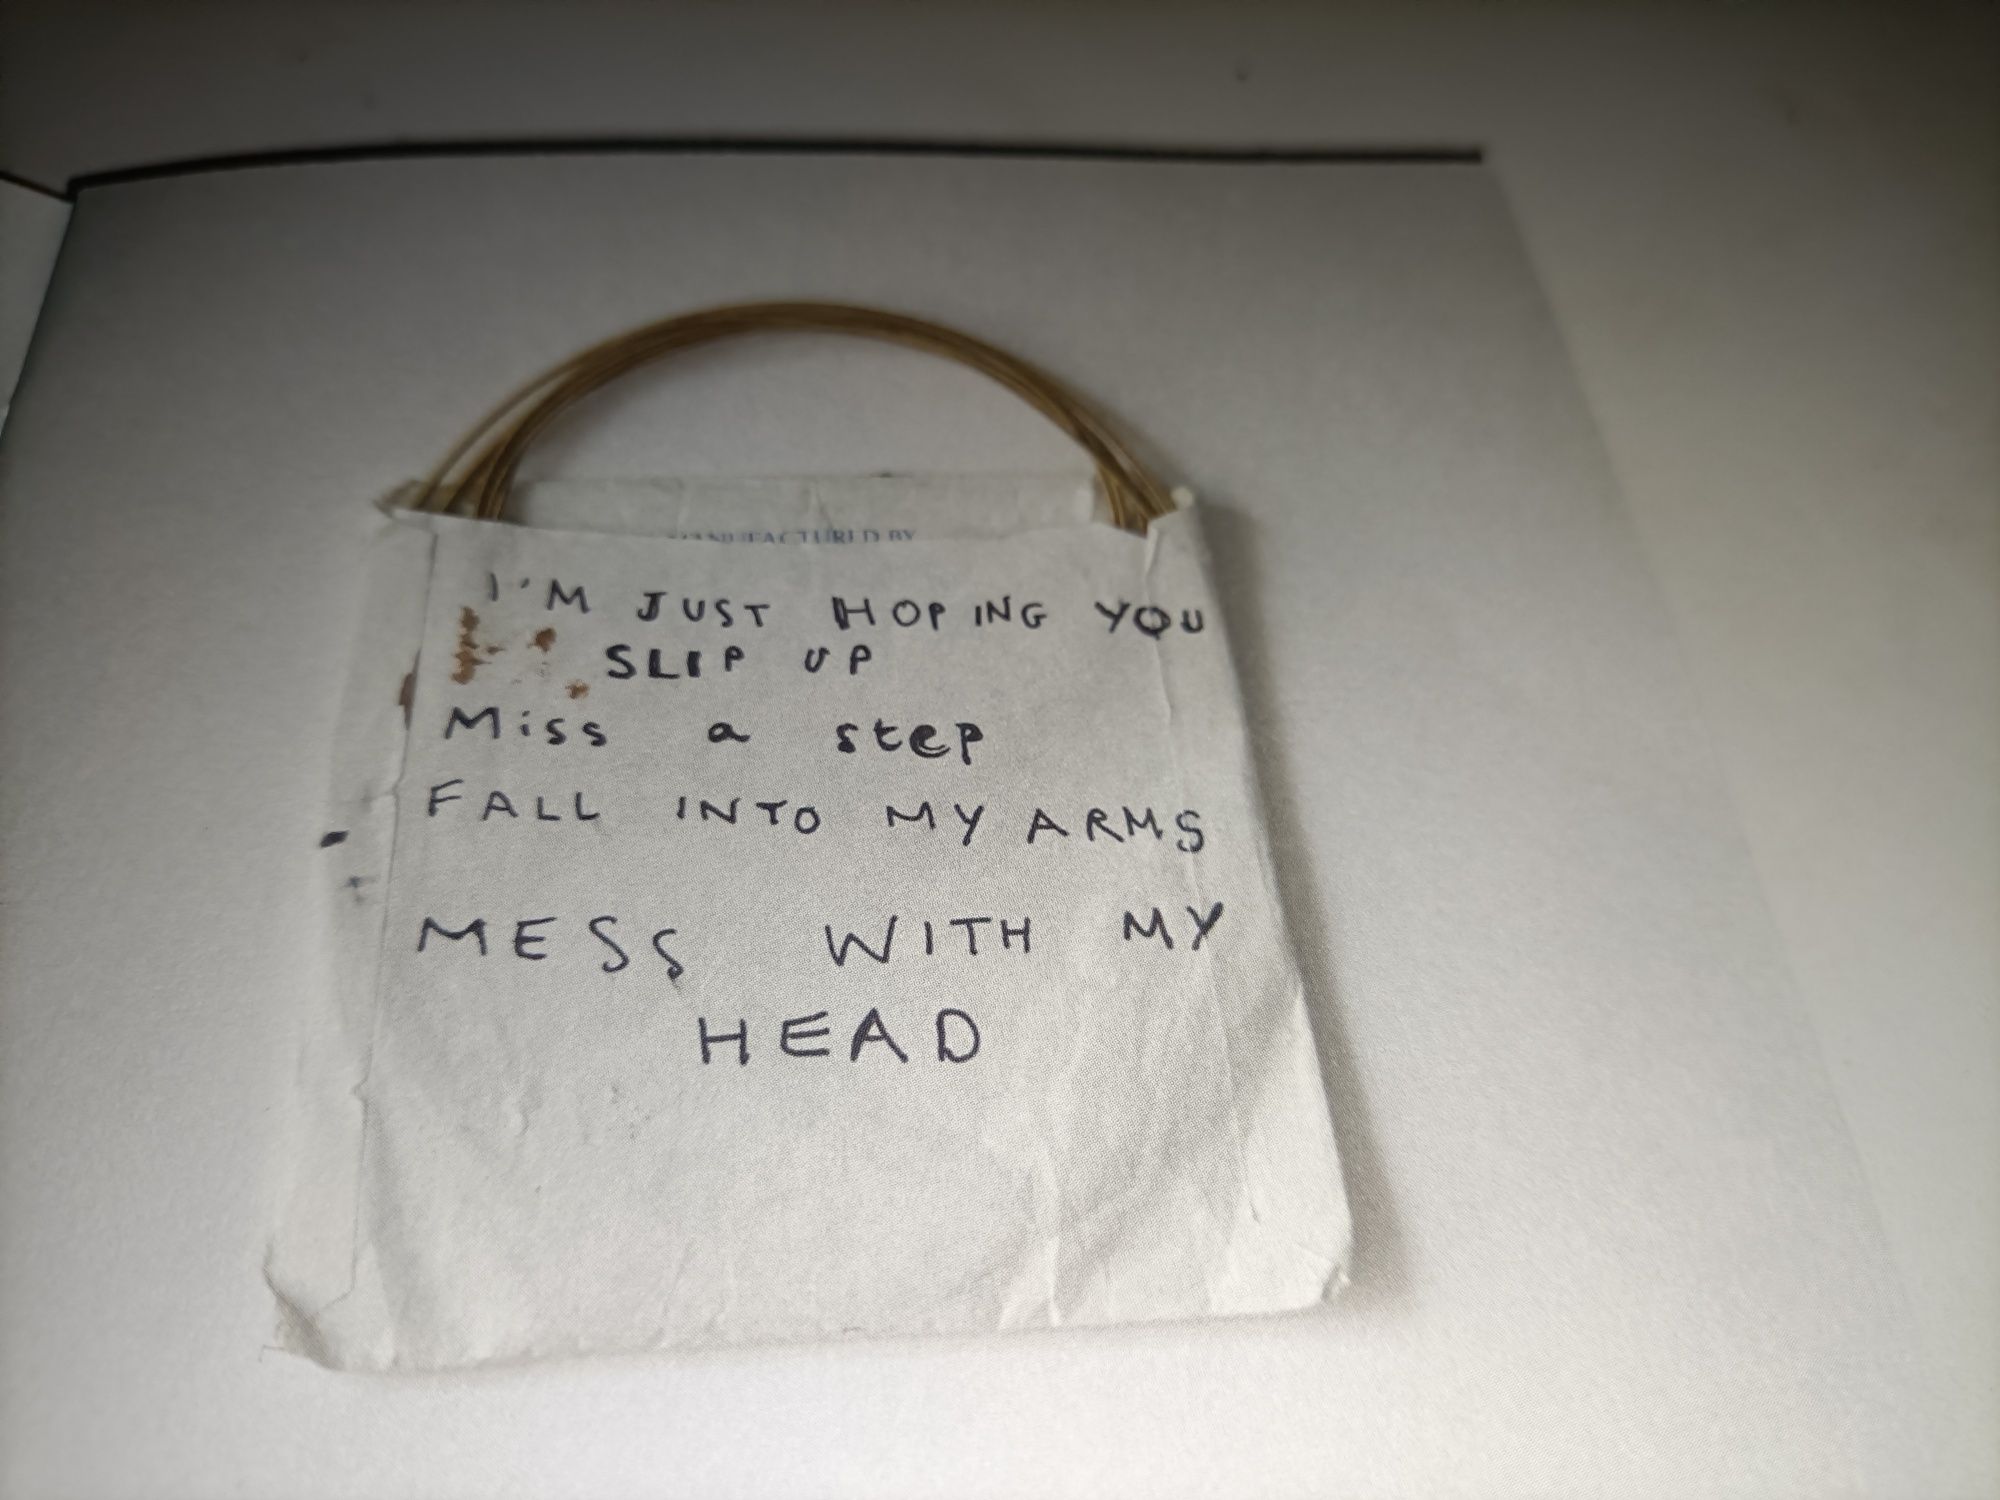 MANUFACTURED BY
I'M JUST HOPING YOU
SLIP UP
Miss a step
FALL INTO MY ARMS
MESS WITH MY
HEAD